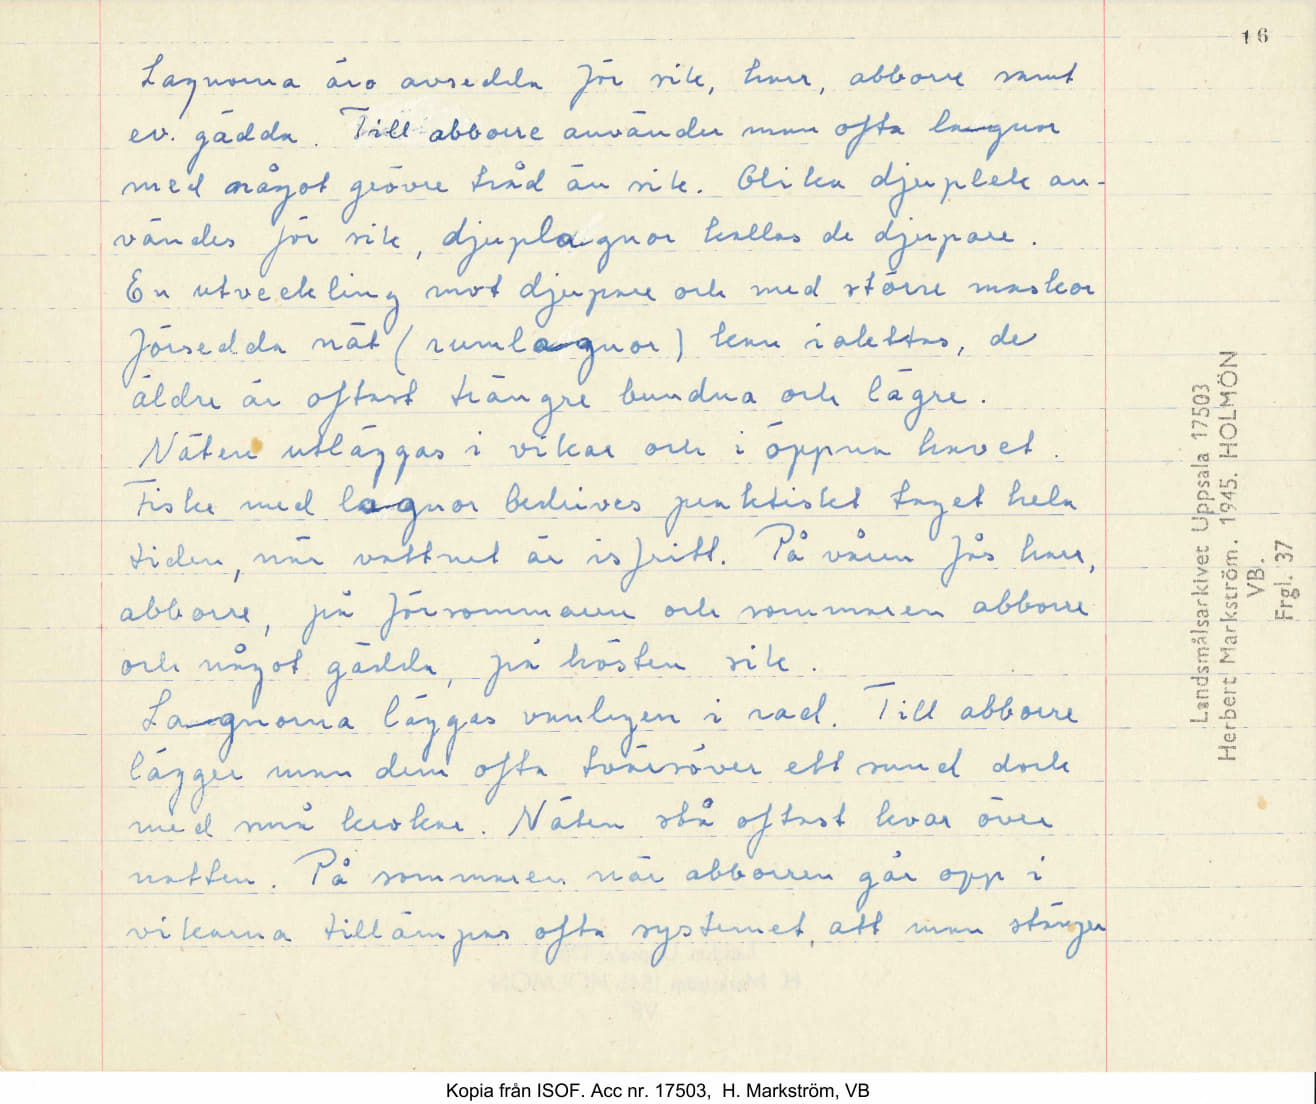 16
Lagnorna äro avsedda för sik, harr, abborre samt
ev. gädda. Till abborre använder man ofta lagnor
med något grövre tråd än sik. Olika djuplek an-
vändes för sik, djuplagnor kallas de djupare.
En utveckling mot djupare och med större maskor
försedda nät (rumlagnor) kan iakttas, de
äldre är oftast trängre bundna och lägre.
Näten utläggas i vikar och i öppna havet.
Fiske med lagnor bedrives praktiskt taget hela
tiden, när vattnet är isfritt. På våren fås harr,
abborre, på försommaren och sommaren abborre
och något gädda, på hösten sik.
Lagnorna läggas vanligen i rad. Till abborre
lägger man dem ofta tvärsöver ett sund dock
med små krokar. Näten stå oftast kvar över
natten. På sommaren när abborren går opp i
vikarna tillämpas ofta systemet, att man stänger
Landsmålsarkivet Uppsala 17503
Herbert Markström. 1945. HOLMÖN
VB.
Frgl. 37
Kopia från ISOF. Acc nr. 17503, H. Markström, VB